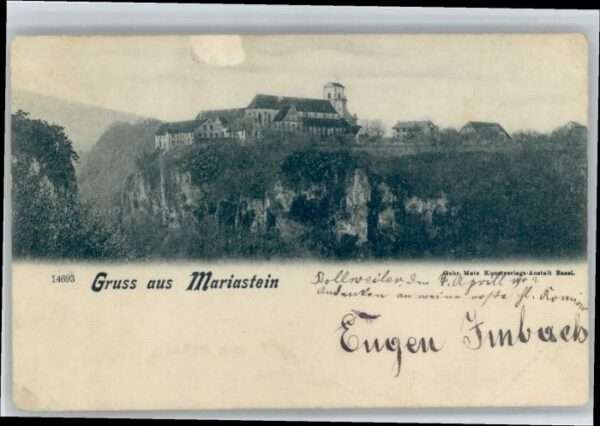 14693 Gruss aus Mariastein
Gebr. Metz Kunstverlags-Anstalt Basel.
Dollweiler, den 4. Aprill
Andenken an meine erste hl.
Eugen Imbach